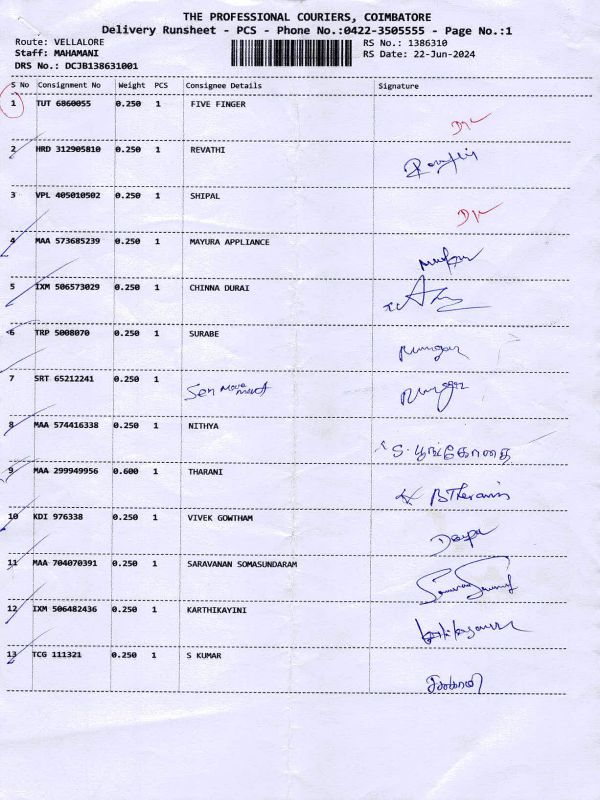 THE PROFESSIONAL COURIERS, COIMBATORE
Delivery Runsheet - PCS - Phone No.:0422-3505555 - Page No.:1
Route: VELLALORE RS No.: 1386310
Staff: MAHAMANI RS Date: 22-Jun-2024
DRS No.: DCJB138631001
S No Consignment No Weight PCS Consignee Details Signature
1 TUT 6860055 0.250 1 FIVE FINGER
2 HRD 312905810 0.250 1 REVATHI
Revathi
3 VPL 405010502 0.250 1 SHIPAL
4 MAA 573685239 0.250 1 MAYURA APPLIANCE
5 IXM 506573029 0.250 1 CHINNA DURAI
6 TRP 5008070 0.250 1 SURABE
7 SRT 65212241 0.250 1
8 MAA 574416338 0.250 1 NITHYA
S. பூங்கோதை
9 MAA 299949956 0.600 1 THARANI
B Tharani
10 KDI 976338 0.250 1 VIVEK GOWTHAM
Deepa
11 MAA 704070391 0.250 1 SARAVANAN SOMASUNDARAM
12 IXM 506482436 0.250 1 KARTHIKAYINI
13 TCG 111321 0.250 1 S KUMAR